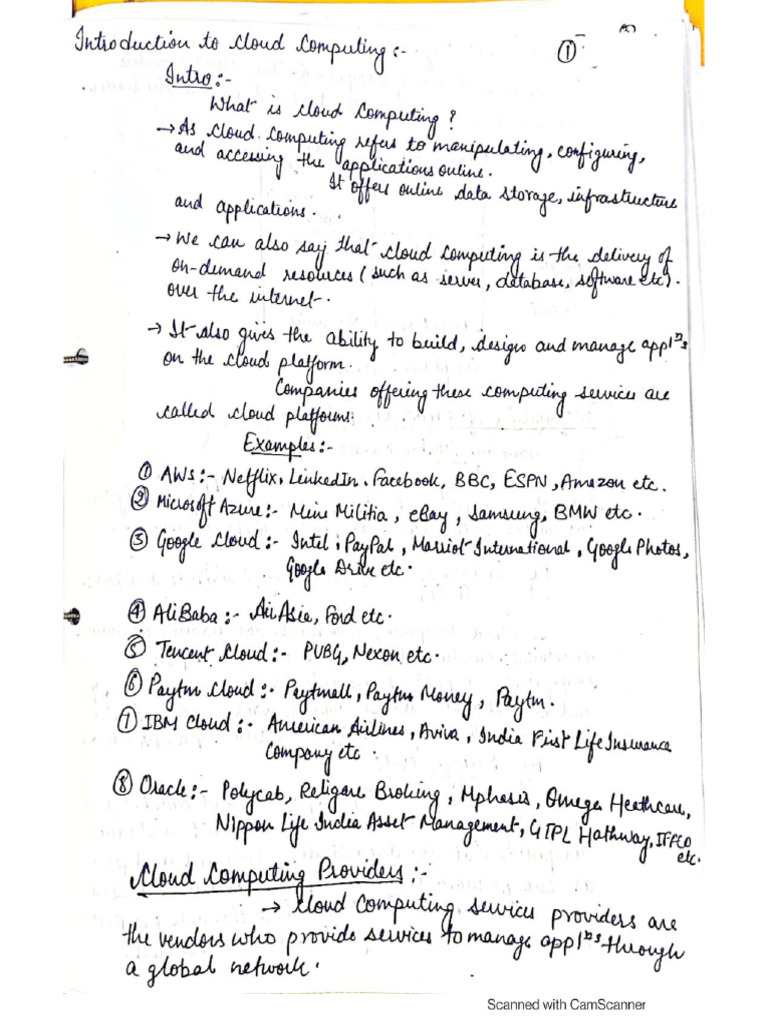 Introduction to Cloud Computing :-
①
Intro :-
What is Cloud Computing ?
→ As Cloud Computing refers to manipulating, configuring,
and accessing the applications online.
It offers online data storage, infrastructure
and applications.
→ We can also say that cloud computing is the delivery of
on-demand resources (such as server, database, software etc).
over the internet.
→ It also gives the ability to build, design and manage applⁿs
on the cloud platform.
Companies offering these computing services are
called cloud platforms.
Examples :-
① AWS :- Netflix, LinkedIn, Facebook, BBC, ESPN, Amazon etc.
② Microsoft Azure :- Mine Militia, eBay, Samsung, BMW etc.
③ Google Cloud :- Intel, PayPal, Marriot International, Google Photos,
Google Drive etc.
④ AliBaba :- AirAsia, Ford etc.
⑤ Tencent Cloud :- PUBG, Nexon etc.
⑥ Paytm Cloud :- Paytmall, Paytm Money, Paytm.
⑦ IBM Cloud :- American Airlines, Aviva, India First Life Insurance
Company etc.
⑧ Oracle :- Polycab, Religare Broking, Mphasis, Omega Heathcare,
Nippon Life India Asset Management, GTPL Hathway, IFFCO
etc.
Cloud Computing Providers :-
→ Cloud Computing services providers are
the vendors who provide services to manage applⁿs through
a global network.
Scanned with CamScanner